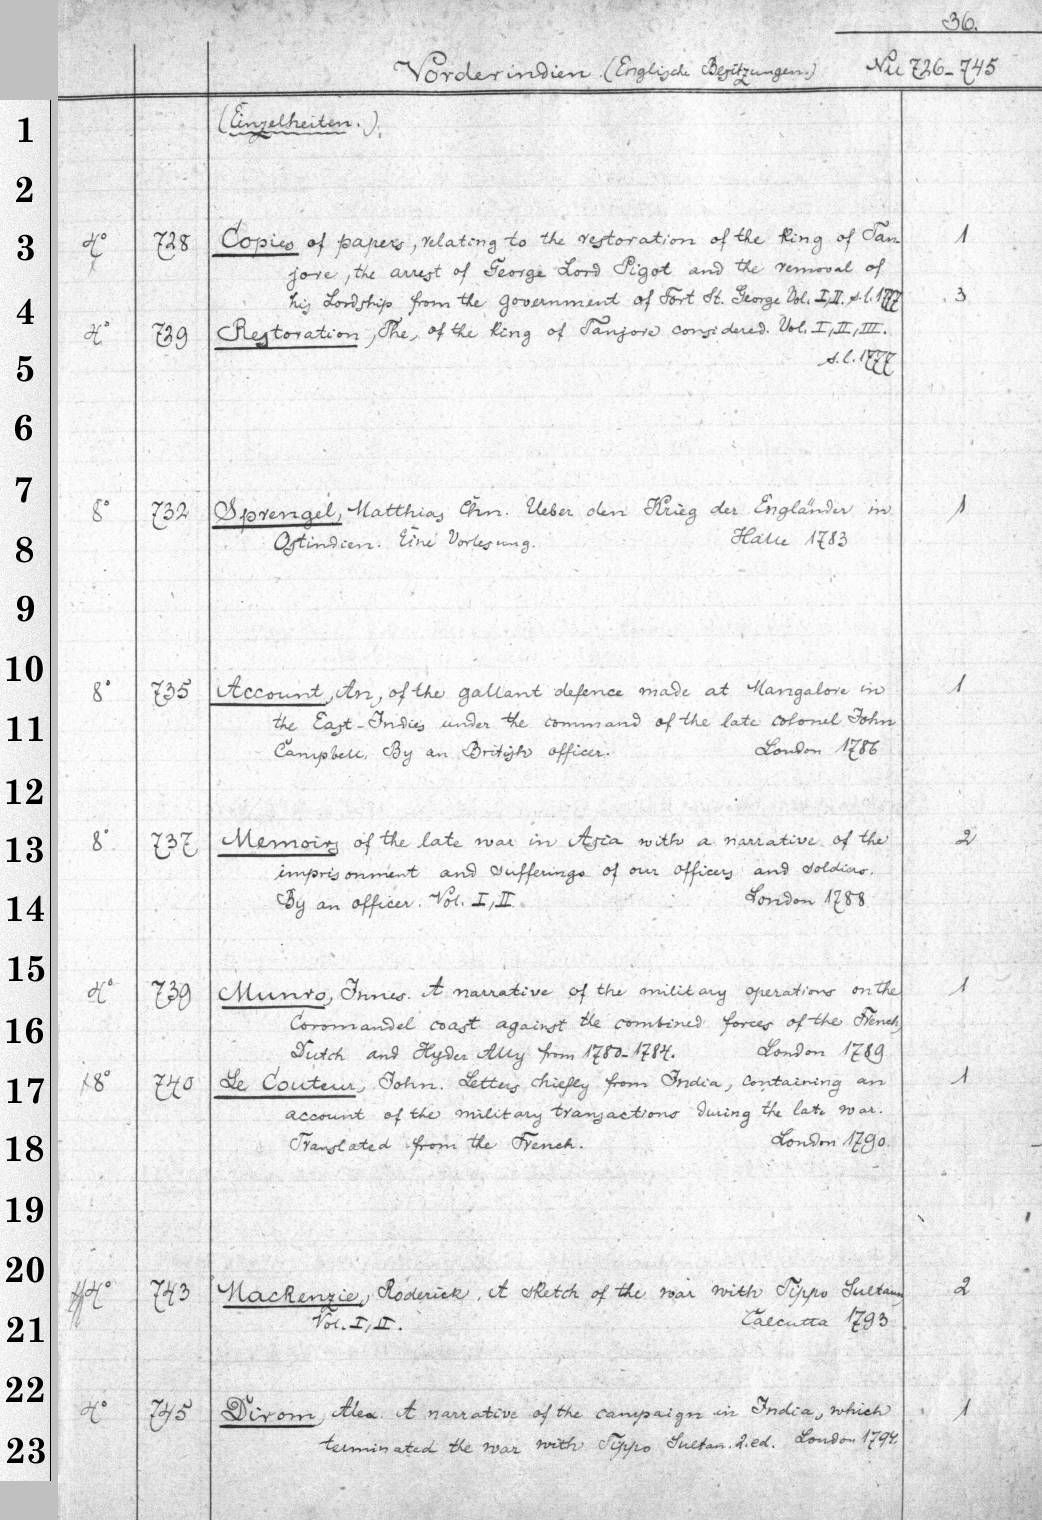 36.
Vorderindien (Englische Besitzungen.) No 726-745
1 (Einzelheiten.).
2
3 4° 728 Copies of papers, relating to the restoration of the King of Tan 1
jore, the arrest of George Lord Pigot and the removal of
4 his Lordship from the government of Fort St. George Vol. I, II. s.l. 1777 3
4° 739 Restoration, The, of the King of Tanjore considered. Vol. I, II, III.
5 s.l. 1777
6
7 8° 732 Sprengel, Matthias Chn. Ueber den Krieg der Engländer in 1
8 Ostindien. Eine Vorlesung. Halle 1783
9
10 8° 735 Account, An, of the gallant defence made at Mangalore in 1
11 the East-Indies under the command of the late colonel John
Campbell. By an British officer. London 1786
12
13 8° 737 Memoirs of the late war in Asia with a narrative of the 2
imprisonment and sufferings of our officers and soldiers.
14 By an officer. Vol. I, II. London 1788
15
4° 739 Munro, Innes. A narrative of the military operations on the 1
16 Coromandel coast against the combined forces of the French,
Dutch and Hyder Ally from 1780-1784. London 1789
17 8° 740 Le Couteur, John. Letters chiefly from India, containing an 1
account of the military transactions during the late war.
18 Translated from the French. London 1790.
19
20 4° 743 Mackenzie, Roderick. A sketch of the war with Tippo Sultaun 2
21 Vol. I, II. Calcutta 1793
22
4° 745 Dirom, Alex. A narrative of the campaign in India, which 1
23 terminated the war with Tippo Sultan. 2. ed. London 1794.